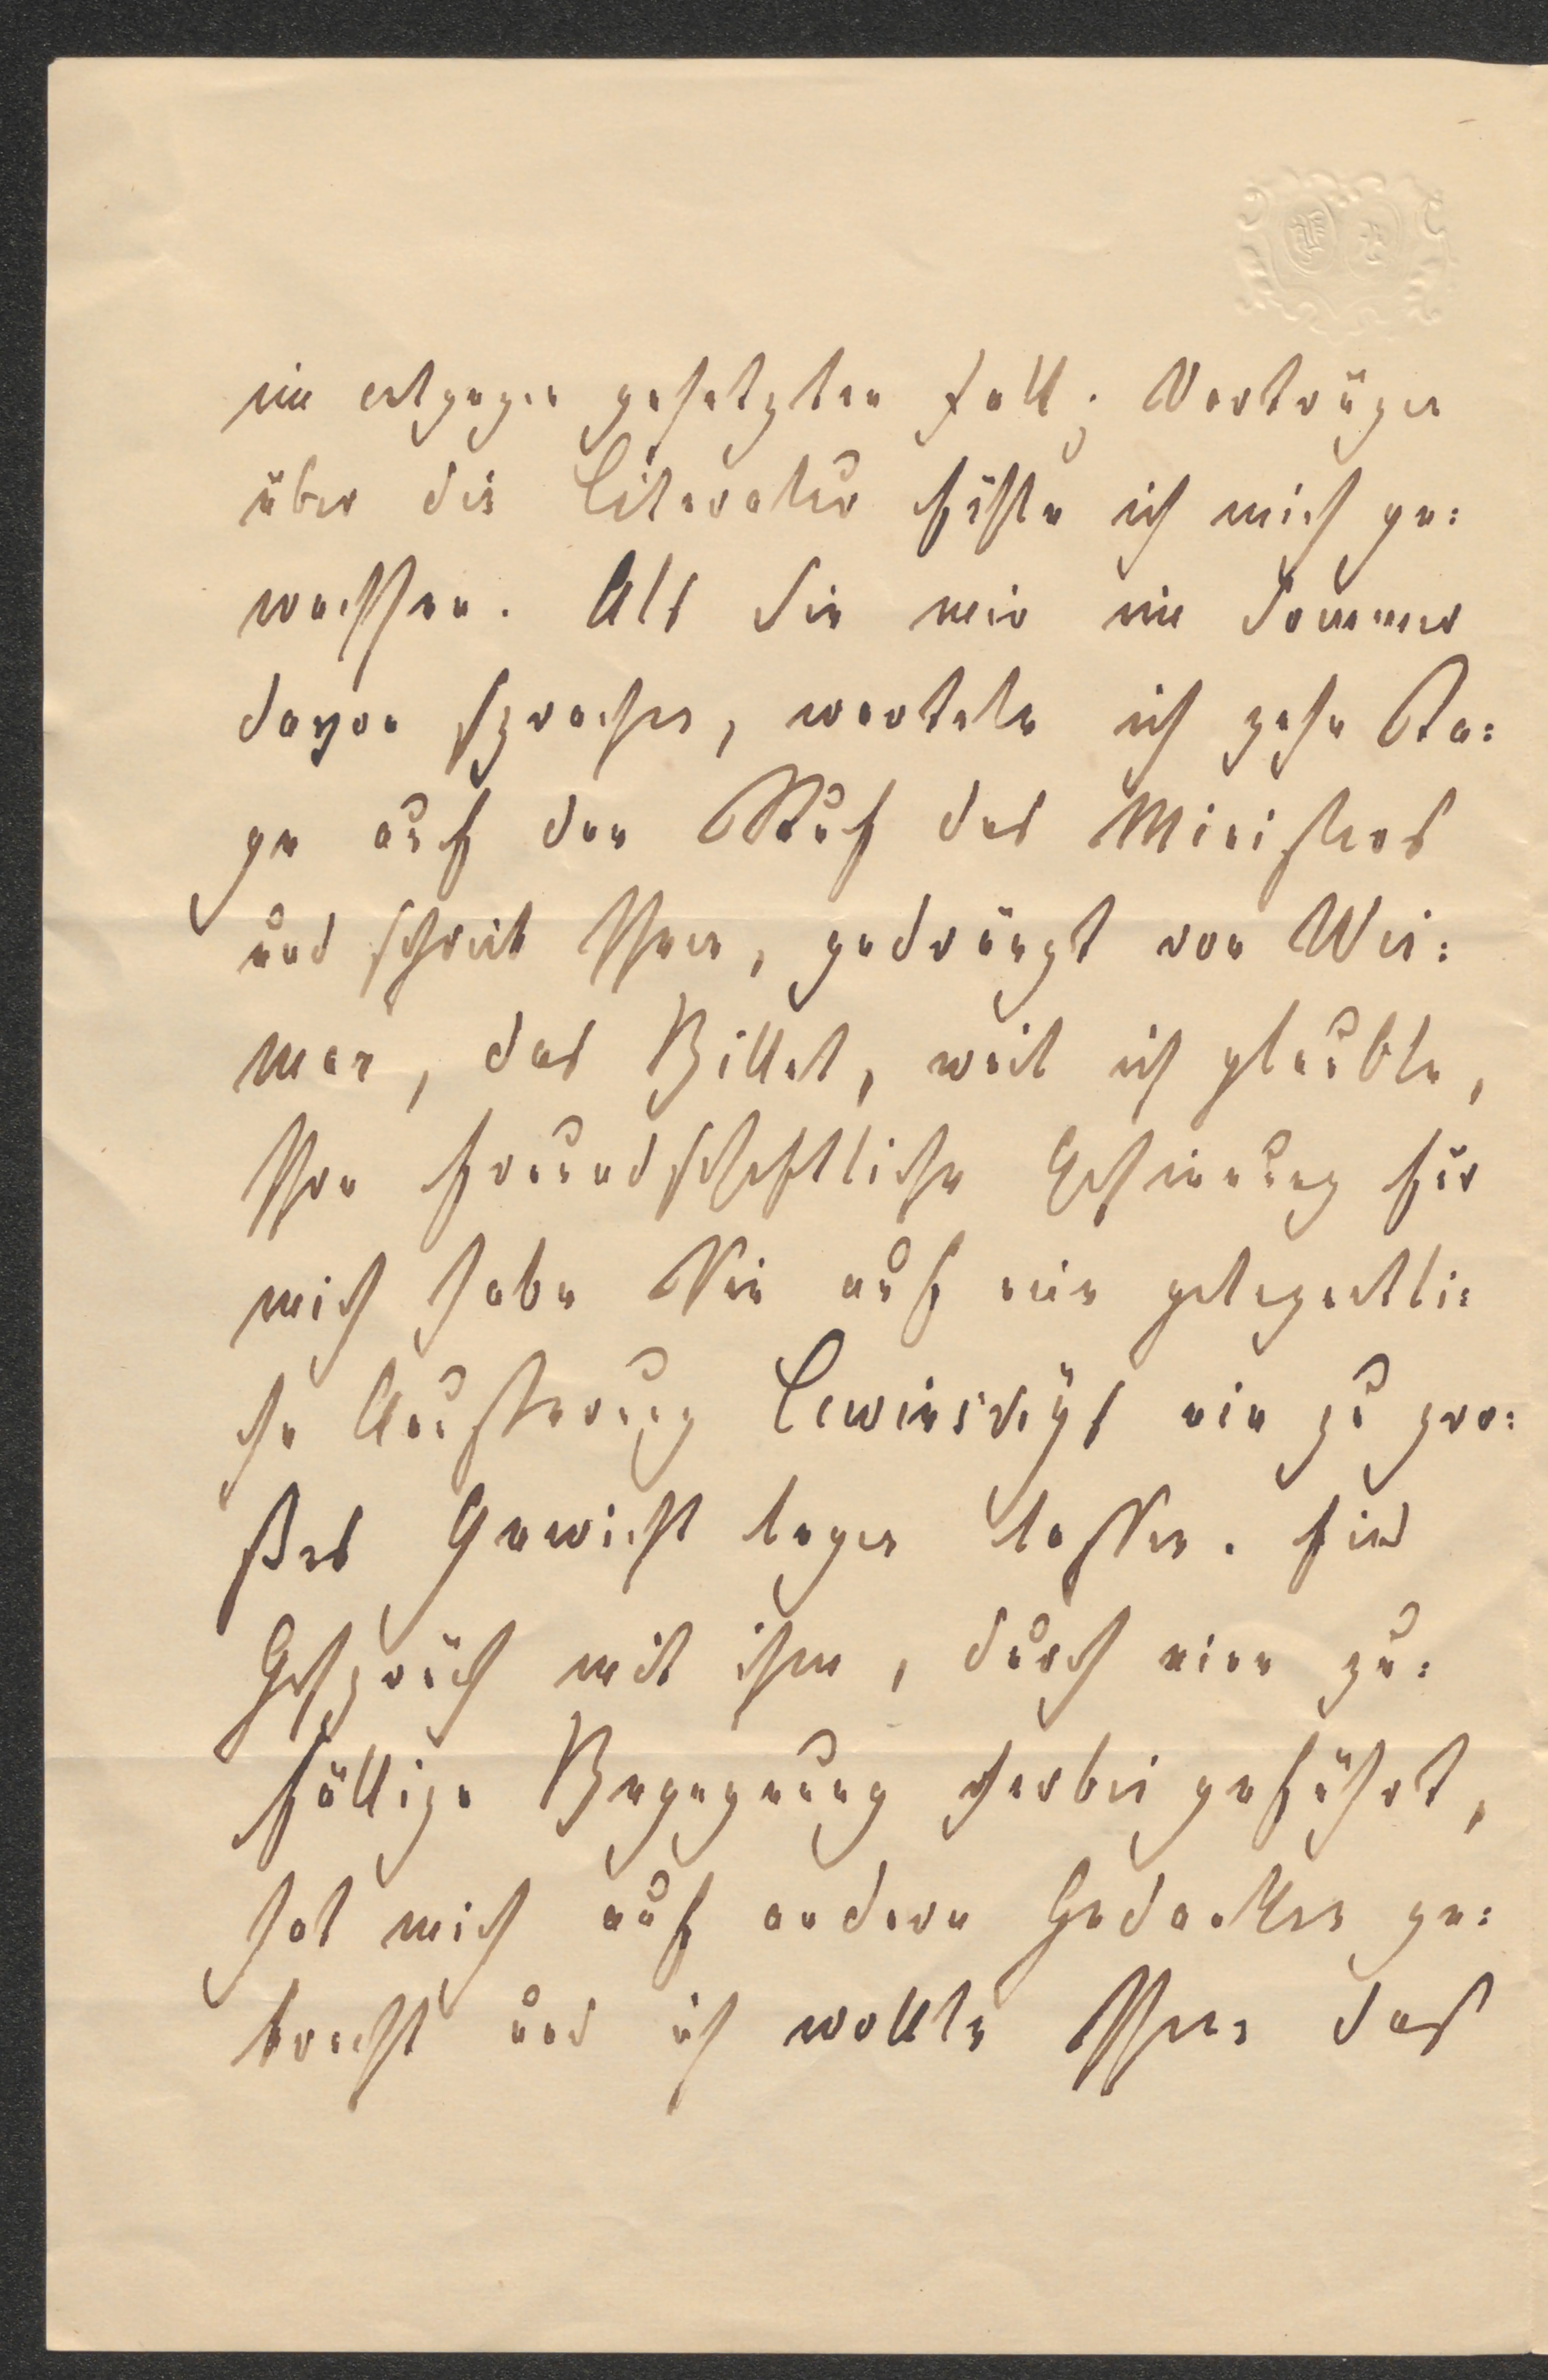 im entgegen gesetzten Fall; Vorträgen
über die Literatur fühle ich mich ge:
wachsen. Als Sie mir im Sommer
davon sprachen, wartete ich zehn Ta:
ge auf den Ruf des Ministers
und schrieb Ihnen, gedrängt von Wei:
mar, das Billet, weil ich glaubte,
Ihre freundschaftliche Gesinnung für
mich habe Sie auf eine gelegentli:
che Äußerung Lewinskys ein zu gro:
ßes Gewicht legen lassen. Ein
Gespräch mit ihm, durch eine zu:
fällige Begegnung herbei geführt,
hat mich auf andere Gedanken ge:
bracht und ich wollte Ihnen das